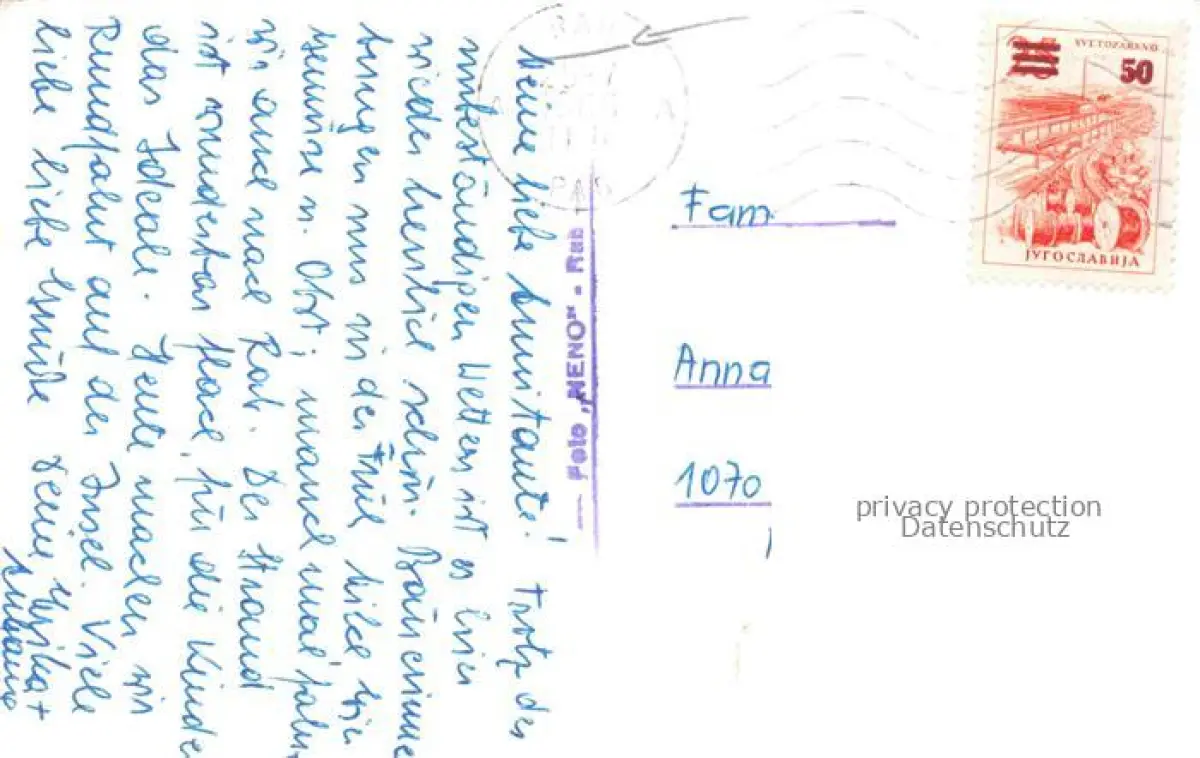 Meine liebe Annitante! Trotz des
unbeständigen Wetters ist es hier
wieder herrlich schön. Bäuerinnen
bringen uns in der Früh Milch
Gemüse u. Obst, manchmal fahren
wir auch nach Rab. Der Strand
ist wunderbar flach, für die Kinder
das Ideale. Heute machen wir
Rundfahrt auf der Insel. Viele
liebe liebe Grüße Deine Erika +
Foto „NENO" - Rab
RAB
Fam.
Anna
1070
50
SVETOZAREVO
ЈУГОСЛАВИЈА
privacy protection
Datenschutz